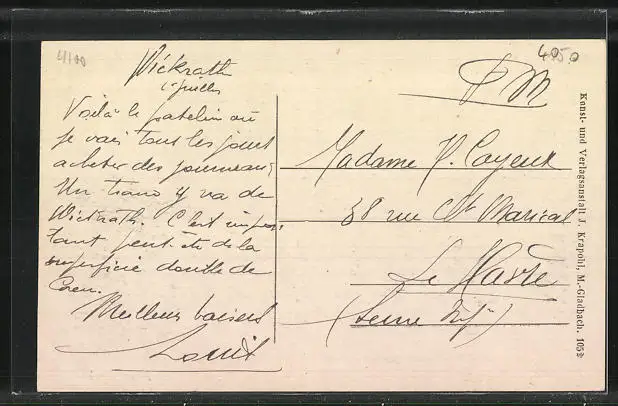 4100
4050
Wickrath
juillet
F M
Voilà le patelin où
je vais tous les jours
acheter des journaux
Un tram y va de
Wickrath. C'est impor-
tant peut-être de la
superficie double de
Caen.
Meilleurs baisers
Louis
Madame H. Cayeux
38 rue
Le Havre
(Seine Infre)
Kunst- und Verlagsanstalt J. Krapohl, M.-Gladbach. 1052